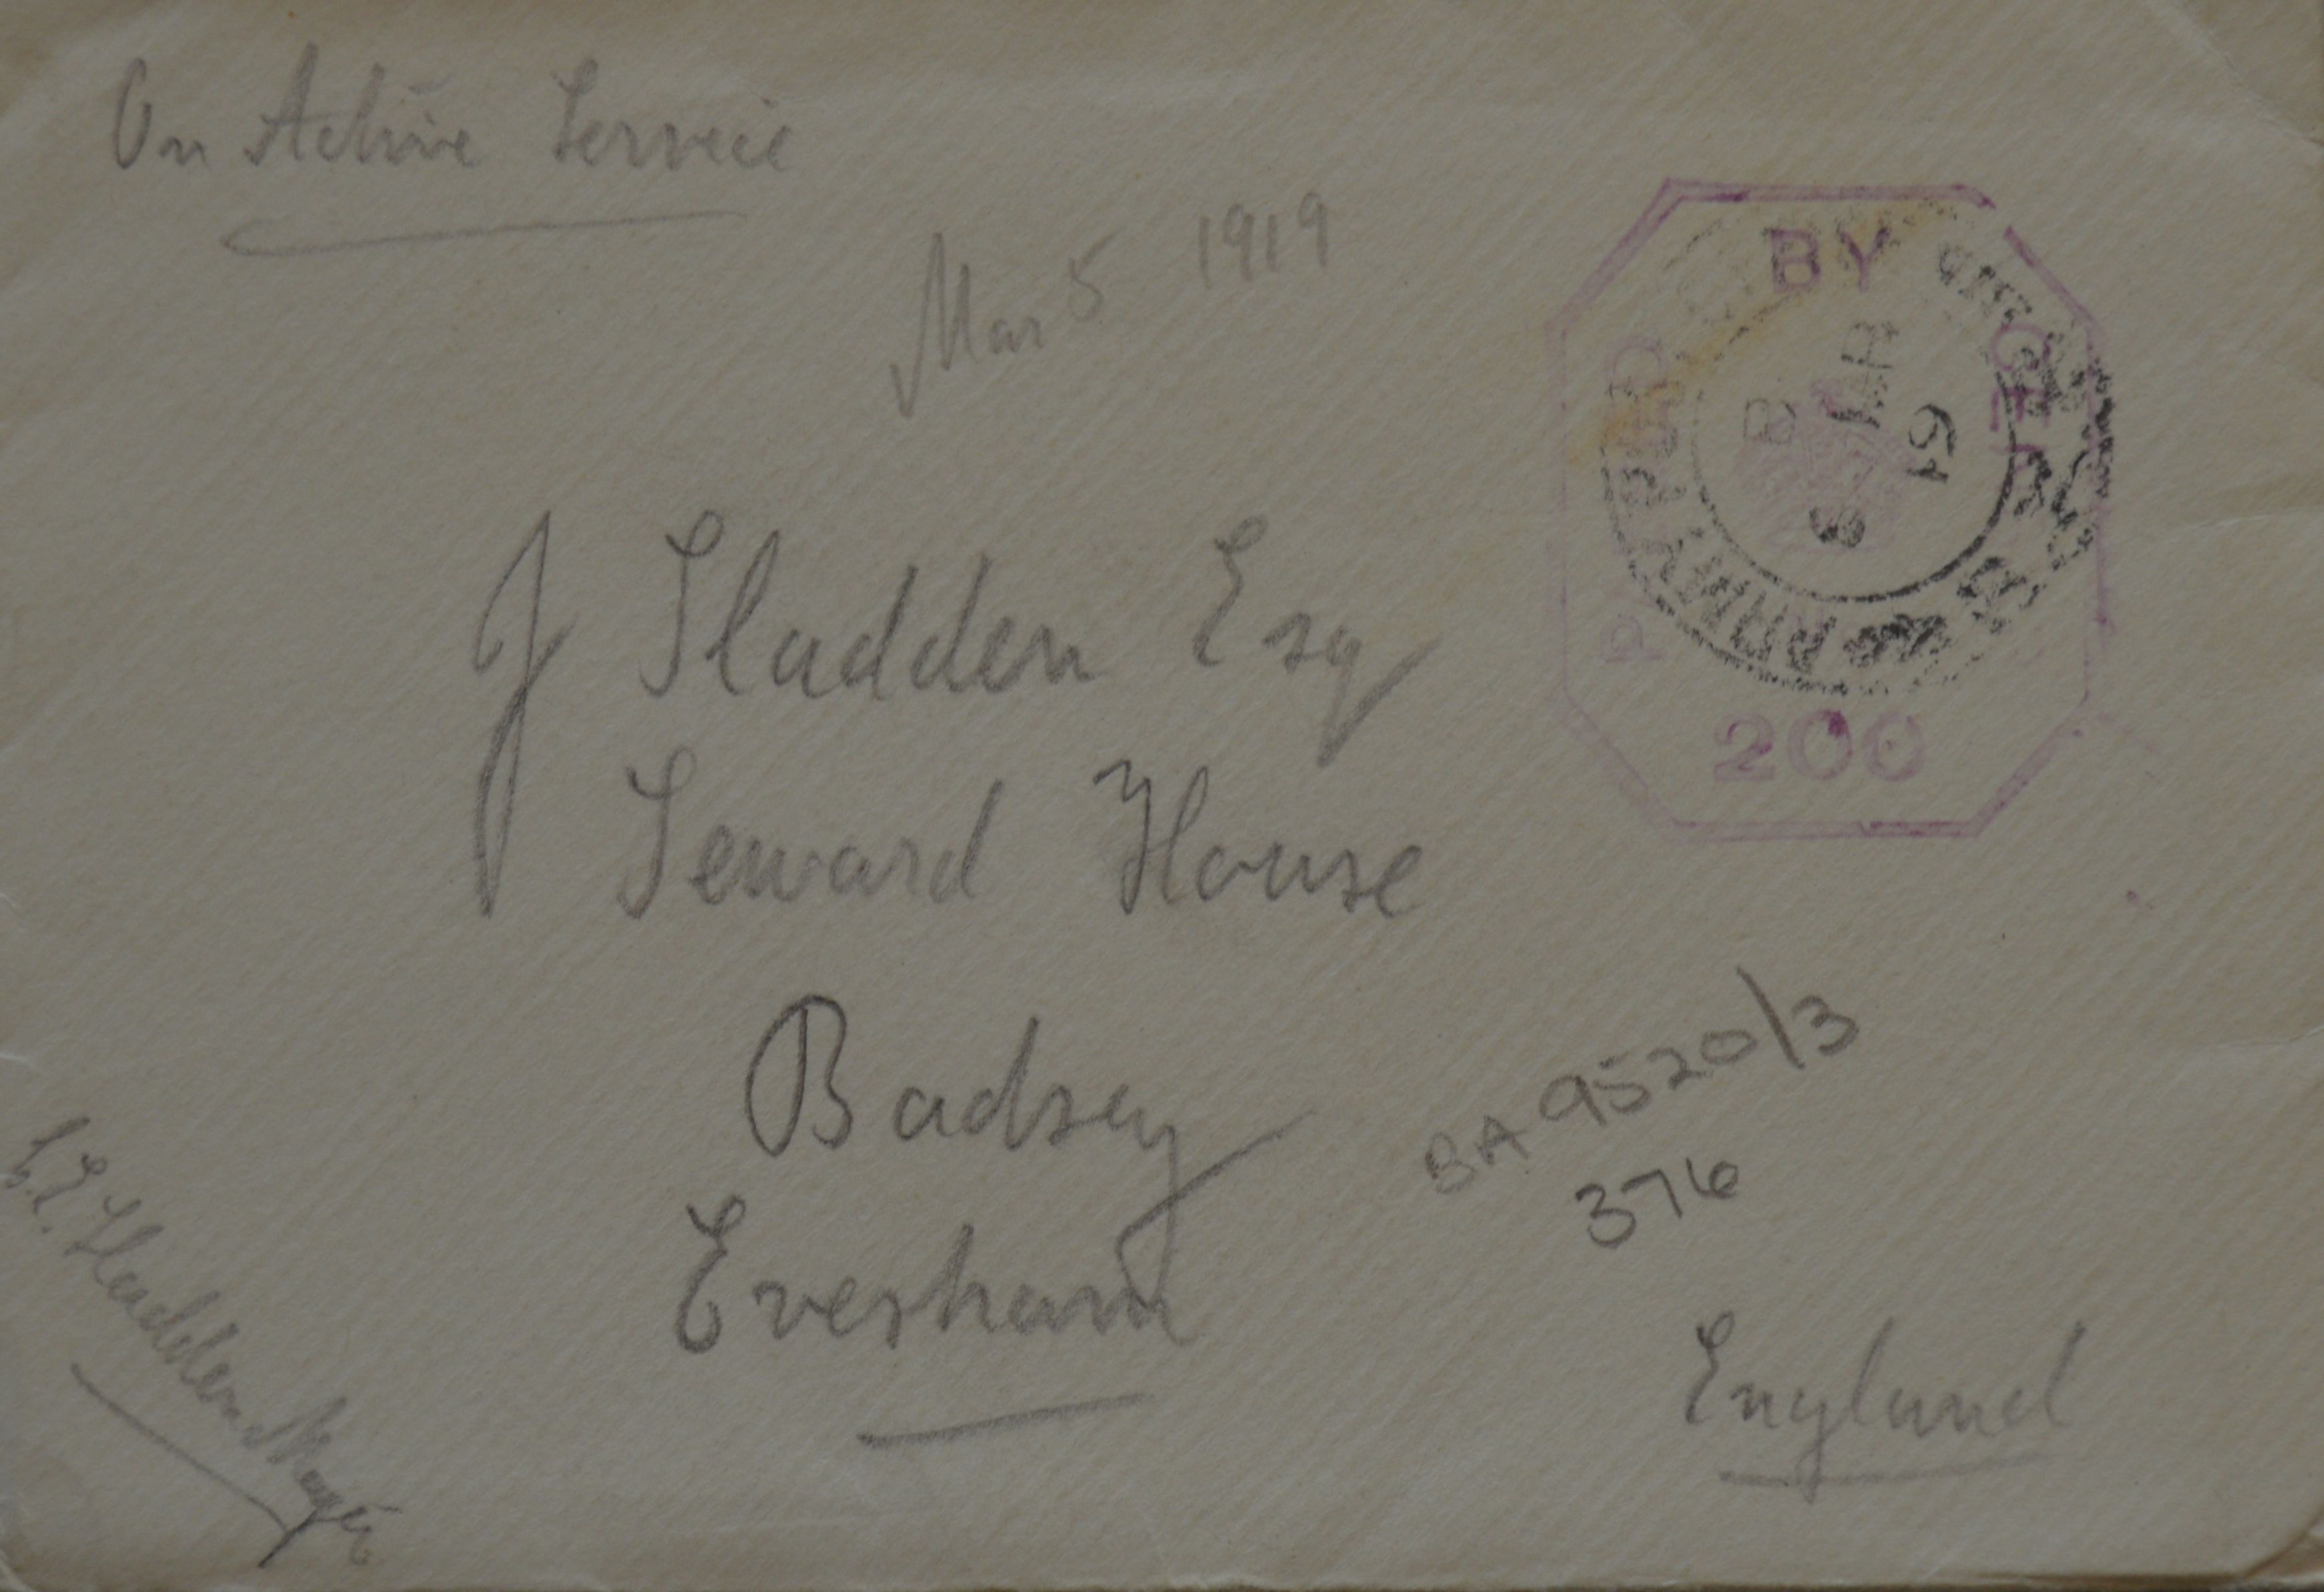 On Active Service
Mar 5 1919
BY
200
ARMY
MAR
19
J Sladden Esq
Seward House
Badsey
Evesham
England
BA 9520/3
376
C.E. Sladden Major